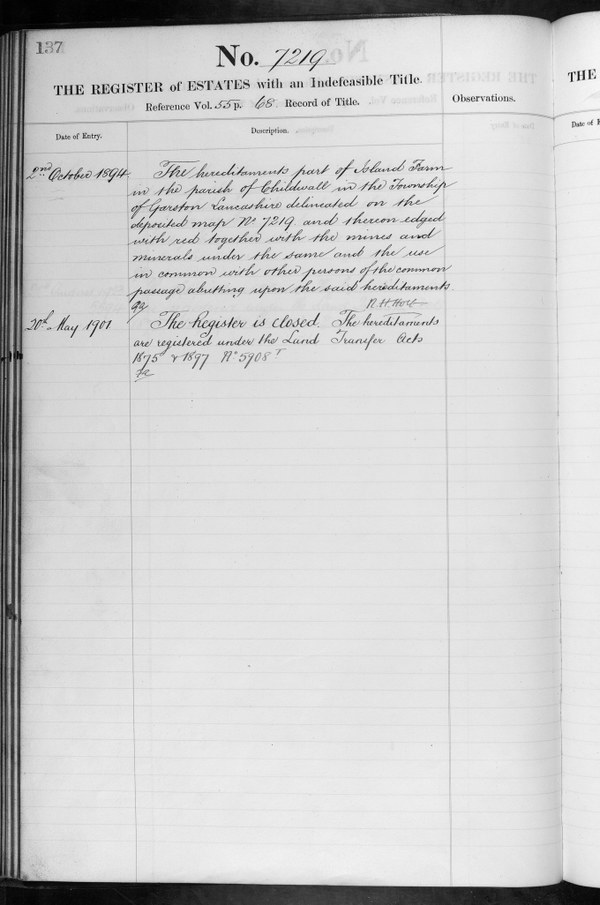 137
No. 7219.
THE REGISTER of ESTATES with an Indefeasible Title.
Reference Vol. 55 p. 68 Record of Title.
Observations.
Date of Entry.
Description.
2nd October 1894.
The hereditaments part of Island Farm
in the parish of Childwall in the Township
of Garston Lancashire delineated on the
deposited map No 7219. and thereon edged
with red together with the mines and
minerals under the same and the use
in common with other persons of the common
passage abutting upon the said hereditaments
R. H. Holt
20th May 1901
The Register is closed. The hereditaments
are registered under the Land Transfer Acts
1875 & 1897 No 5908
THE